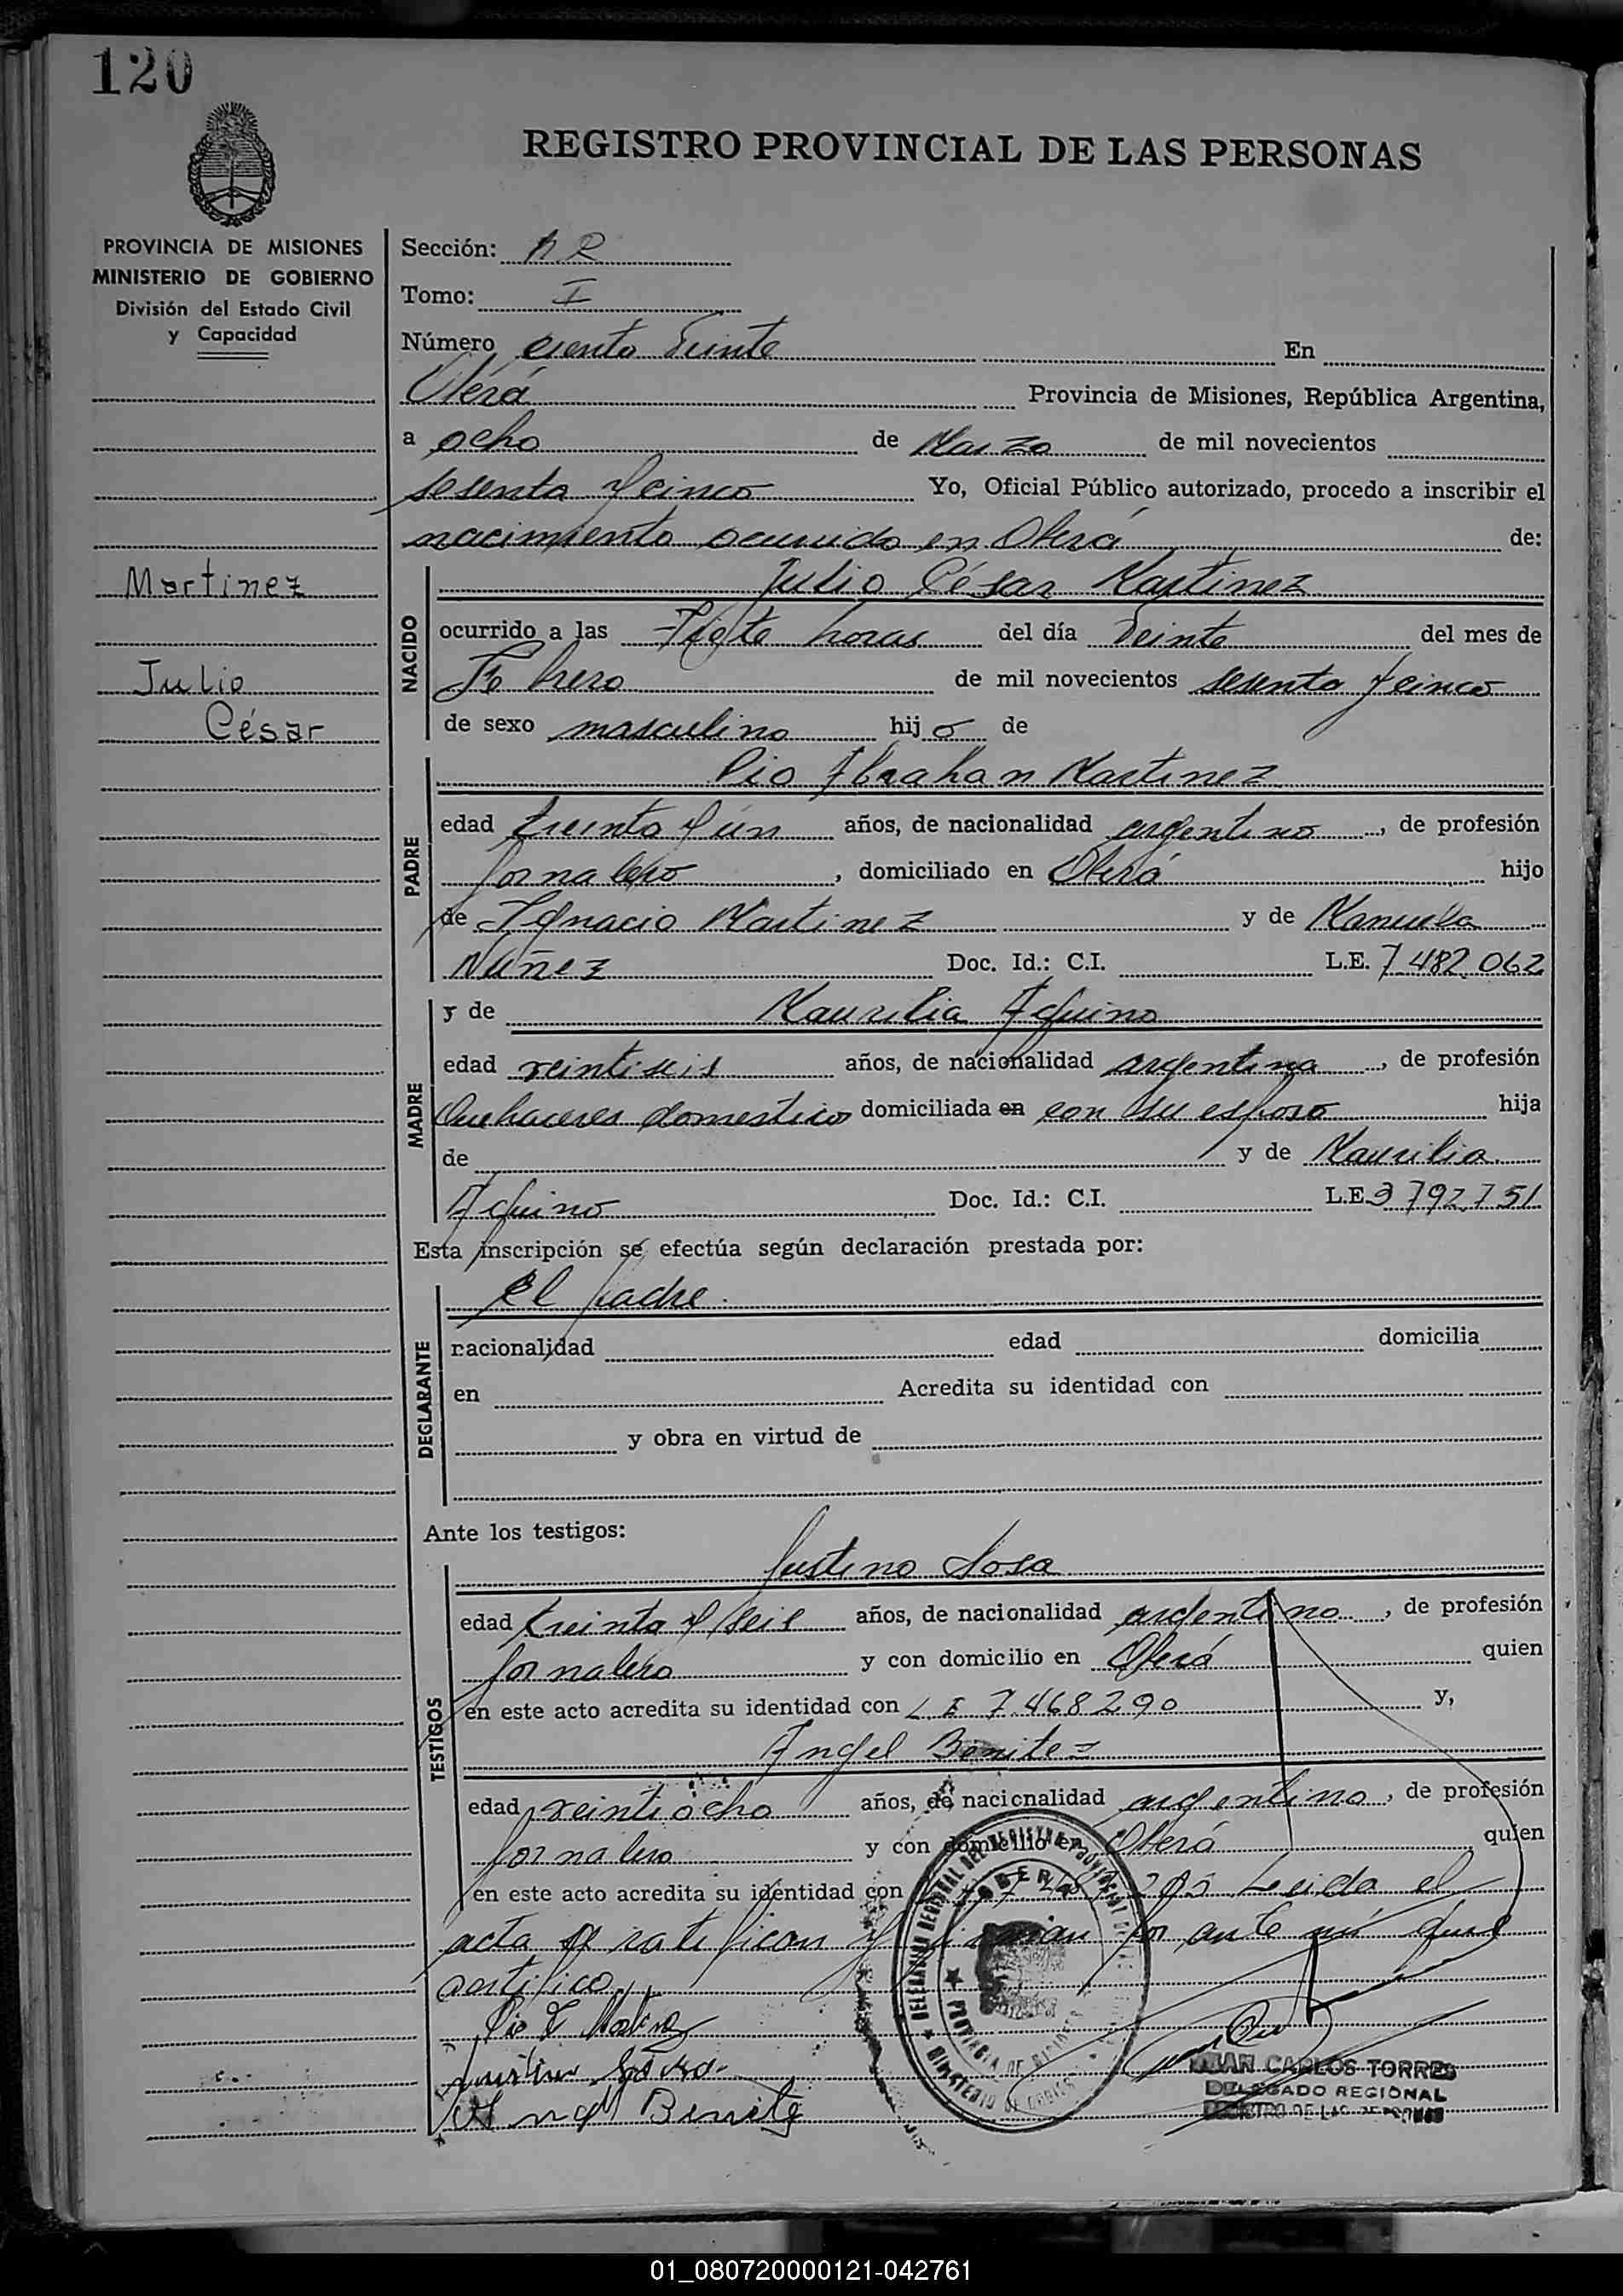 120
REGISTRO PROVINCIAL DE LAS PERSONAS
PROVINCIA DE MISIONES
MINISTERIO DE GOBIERNO
División del Estado Civil
y Capacidad
Martinez
Julio
César
Sección: N R
Tomo: I
Número ciento veinte En
Oberá Provincia de Misiones, República Argentina,
a ocho de Marzo de mil novecientos
sesenta y cinco Yo, Oficial Público autorizado, procedo a inscribir el
nacimiento ocurrido en Oberá de:
NACIDO
Julio César Martinez
ocurrido a las siete horas del día veinte del mes de
Febrero de mil novecientos sesenta y cinco
de sexo masculino hijo de
PADRE
Pio Abrahan Martinez
edad treinta y un años, de nacionalidad argentino, de profesión
jornalero, domiciliado en Oberá hijo
de Ignacio Martinez y de Manuela
Nuñez Doc. Id.: C.I. L.E. 7 482.062
MADRE
y de Maurilia Aquino
edad veintiseis años, de nacionalidad argentina, de profesión
Quehaceres domestico domiciliada en con su esposo hija
de y de Maurilia
Aquino Doc. Id.: C.I. L.E. 3 792.751
Esta inscripción se efectúa según declaración prestada por:
DECLARANTE
el padre.
nacionalidad edad domicilia
en Acredita su identidad con
y obra en virtud de
Ante los testigos:
TESTIGOS
Justino Sosa
edad treinta y seis años, de nacionalidad argentino, de profesión
jornalero y con domicilio en Oberá quien
en este acto acredita su identidad con L E 7.468290 y,
Angel Benitez
edad veintiocho años, de nacionalidad argentino, de profesión
jornalero y con domicilio en Oberá quien
en este acto acredita su identidad con Leida el
acta se ratifican y firman por ante mi que
certifico
Angel Benitez
JUAN CARLOS TORRES
DELEGADO REGIONAL
REGISTRO DE LAS PERSONAS
01_080720000121-042761